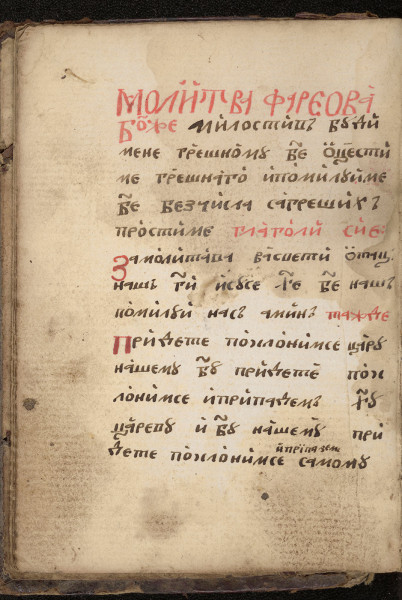 Молитва фарсова
Боже милостивъ буди
мене грешному бже оцести
ме грешнаго ипомилуиме
бже безчисла сагрешихъ
простиме глаголи сие:
Замолитава васцети отацъ
нашъ гди исусе хрсе бже нашъ
помилуи насъ аминъ тажде
Придете поклонимсе цару
нашему бгу придете пок
лонимсе иприпадемъ хру
цареву и бгу нашему при
дете поклонимсе иприпадемъ самому